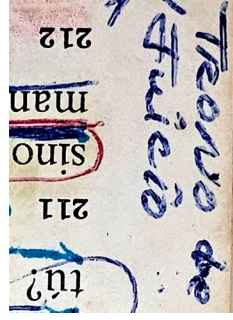 tú?
211
sino
man
212
Trono de
Juicio